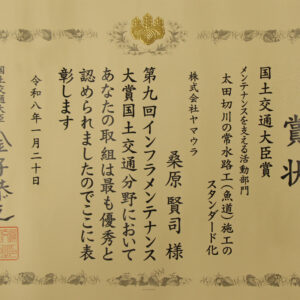 賞状
国土交通大臣賞
メンテナンスを支える活動部門
太田切川の常水路工(魚道)施工の
スタンダード化
株式会社ヤマウラ
桑原 賢司 様
第九回インフラメンテナンス
大賞国土交通分野において
あなたの取組は最も優秀と
認められましたのでここに表
彰します
令和八年一月二十日
国土交通大臣